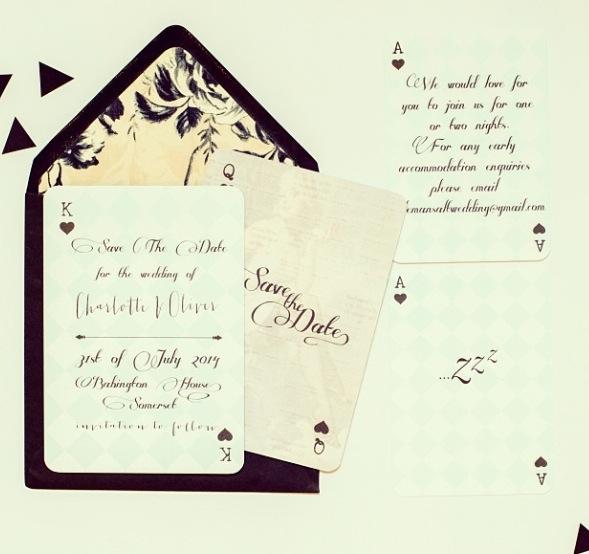 K
Save The Date
for the wedding of
Charlotte & Oliver
31st of July
House
Somerset
invitation to follow
K
Q
Save
the
Date
Q
A
We would love for
you to join us for one
or two nights.
For any early
accommodation enquiries
please email
A
A
...zzz
A